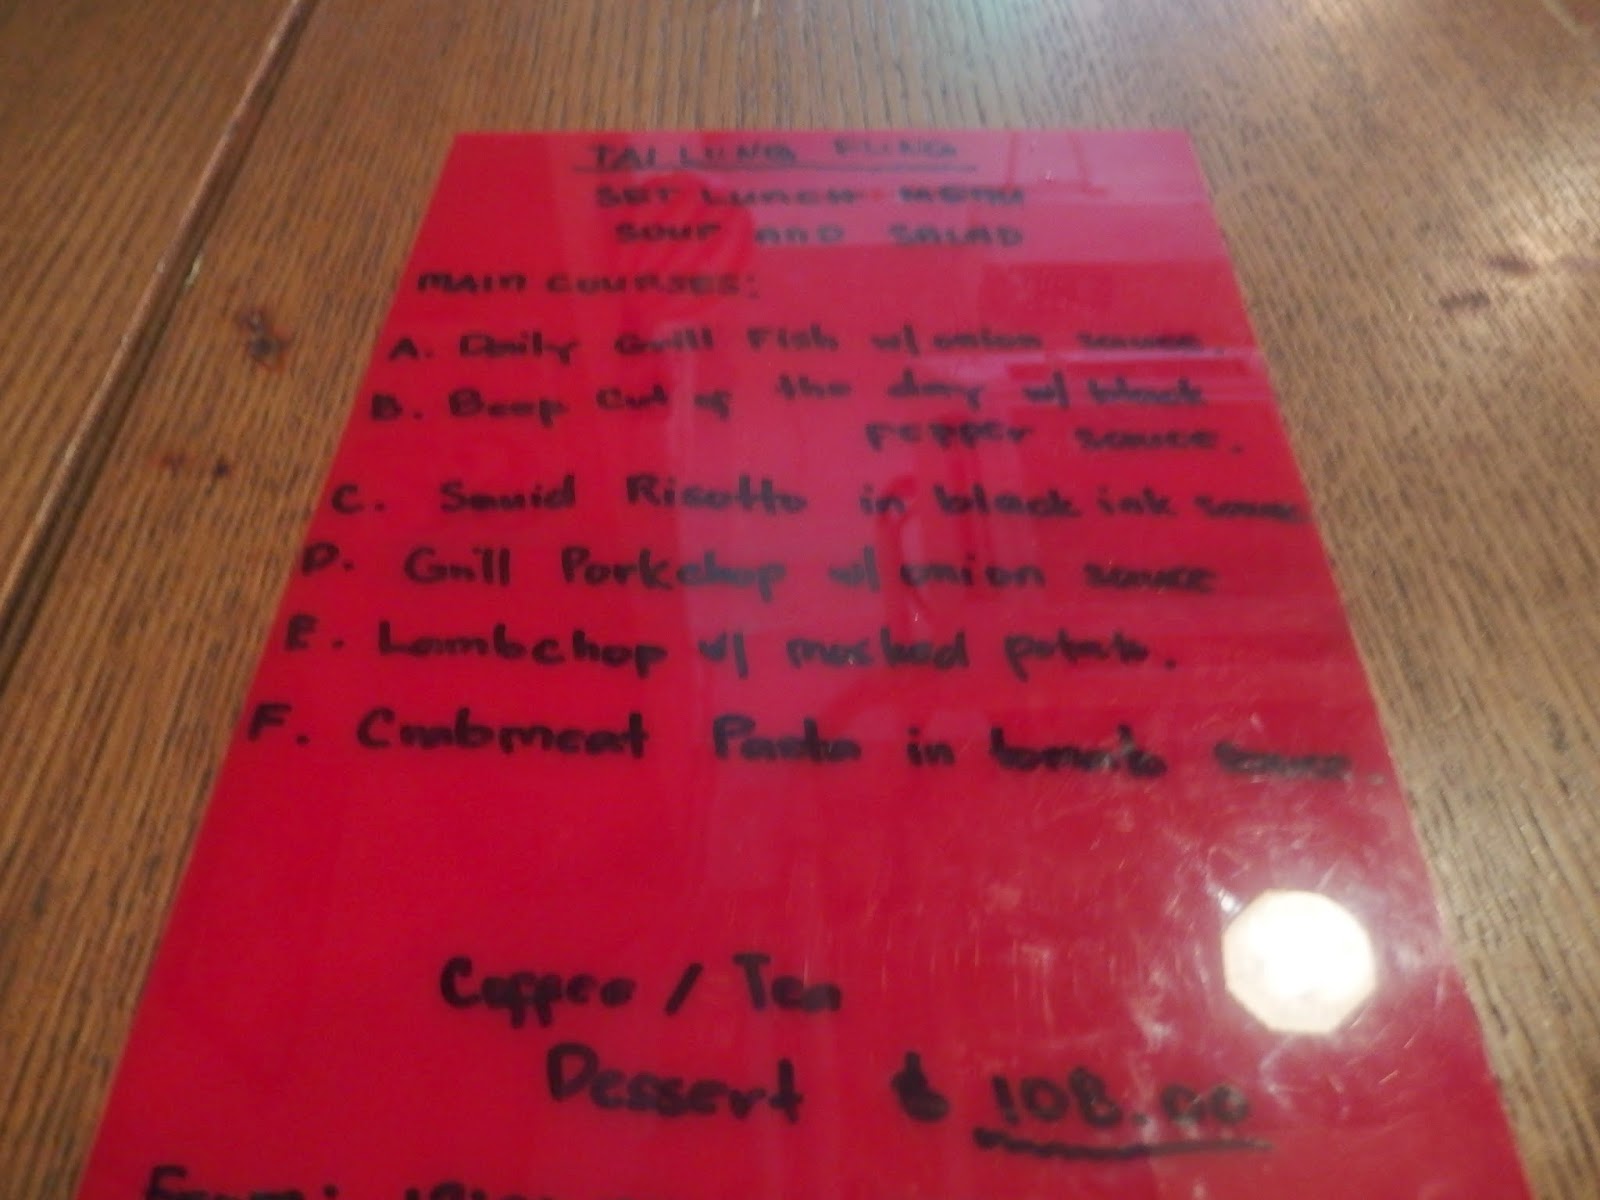 TAI LUNG FUNG
SET LUNCH MENU
SOUP AND SALAD
MAIN COURSES:
A. Daily Grill Fish w/ onion sauce.
B. Beef Cut of the day w/ black
pepper sauce.
C. Squid Risotto in black ink sauce
D. Grill Porkchop w/ onion sauce
E. Lambchop w/ mashed potato.
F. Crabmeat Pasta in tomato sauce.
Coffee / Tea
Dessert $ 108.00
From: